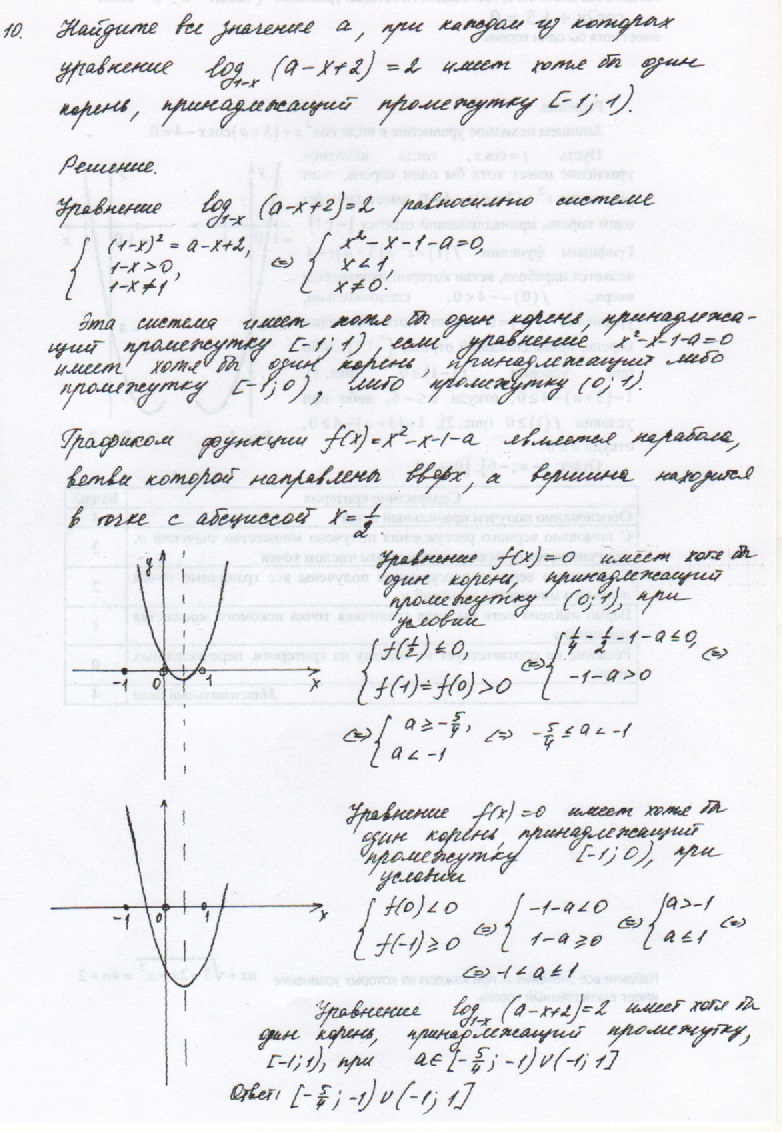 10. Найдите все значение a, при каждом из которых
уравнение log_{1-x} (a-x+2) = 2 имеет хотя бы один
корень, принадлежащий промежутку [-1; 1).
Решение.
Уравнение log_{1-x} (a-x+2) = 2 равносильно системе
{ (1-x)² = a-x+2, 1-x>0, 1-x≠1 ⇔ { x²-x-1-a=0, x<1, x≠0.
Эта система имеет хотя бы один корень, принадлежа-
щий промежутку [-1; 1), если уравнение x²-x-1-a=0
имеет хотя бы один корень, принадлежащий либо
промежутку [-1; 0), либо промежутку (0; 1).
Графиком функции f(x)=x²-x-1-a является парабола,
ветви которой направлены вверх, а вершина находится
в точке с абсциссой x=1/2
y
-1 0 1 x
Уравнение f(x)=0 имеет хотя бы
один корень, принадлежащий
промежутку (0; 1), при
условии
{ f(1/2) ≤ 0, f(1)=f(0)>0 ⇔ { 1/4 - 1/2 - 1 - a ≤ 0, -1-a>0 ⇔
⇔ { a ≥ -5/4, a < -1 ⇔ -5/4 ≤ a < -1
-1 0 1 x
Уравнение f(x)=0 имеет хотя бы
один корень, принадлежащий
промежутку [-1; 0), при
условии
{ f(0)<0 f(-1)≥0 ⇔ { -1-a<0 1-a≥0 ⇔ { a>-1 a≤1 ⇔
⇔ -1 < a ≤ 1
Уравнение log_{1-x} (a-x+2)=2 имеет хотя бы
один корень, принадлежащий промежутку,
[-1; 1), при a∈[-5/4; -1)∪(-1; 1]
Ответ: [-5/4; -1)∪(-1; 1]